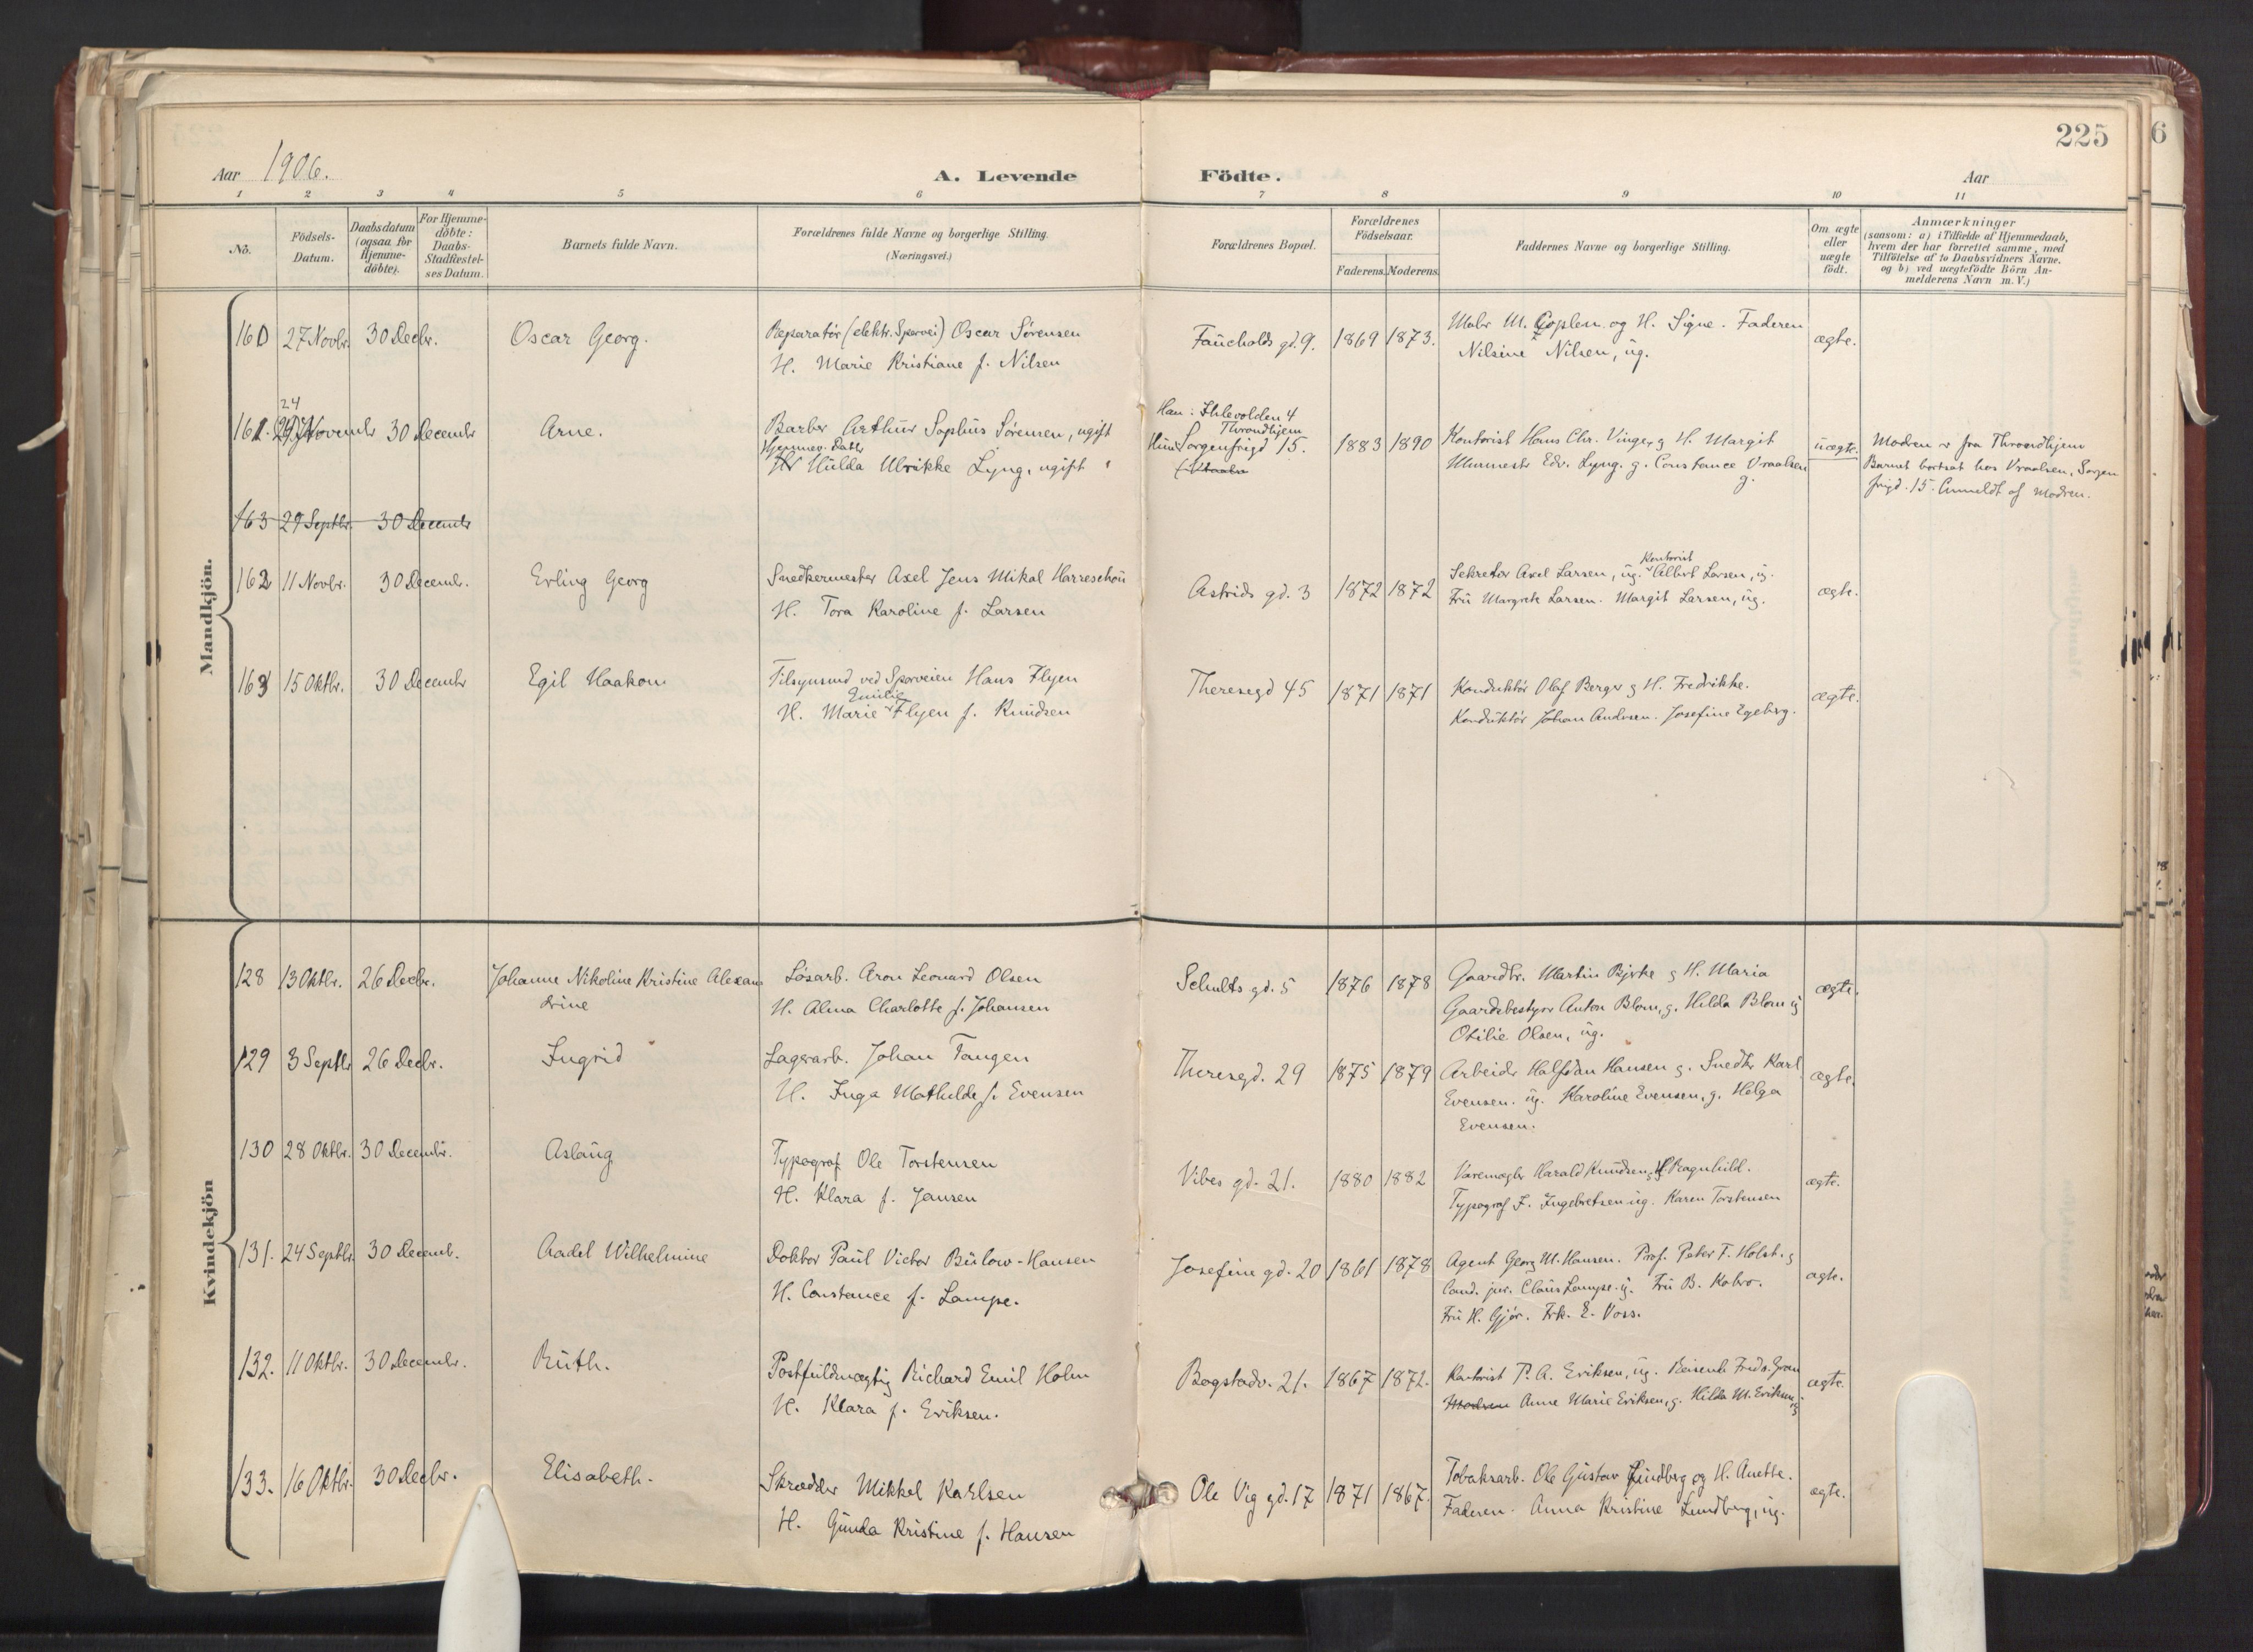 225
6
Aar 1906.
A. Levende
Födte.
Aar
1 2 3 4 5 6 7 8 9 10 11
No.
Födsels-
Datum.
Daabsdatum
(ogsaa for
Hjemme-
döbte).
For Hjemme-
döbte:
Daabs-
Stadfæstel-
ses Datum.
Barnets fulde Navn.
Forældrenes fulde Navne og borgerlige Stilling.
(Næringsvei.)
Forældrenes Bopæl.
Forældrenes
Födselsaar.
Faderens. Moderens.
Faddernes Navne og borgerlige Stilling.
Om ægte
eller
uægte
födt.
Anmærkninger
(saasom: a) i Tilfælde af Hjemmedaab,
hvem der har forrettet samme, med
Tilföielse af to Daabsvidners Navne.
og b) ved uægtefödte Börn An-
melderens Navn m. V.)
Mandkjön.
160 27 Novbr. 30 Decbr. Oscar Georg.
Reparatør (elektr. Sporvei) Oscar Sørensen
H. Marie Kristiane f. Nilsen
Fauchalds gd. 9. 1869 1873.
Maler M. Coplen og H. Signe. Faderen
Nilsine Nilsen, ug.
ægte.
24
161. Novembr 30 Decembr Arne.
Barber Arthur Sophus Sørensen, ugift
Hjemmev. Datter
Hulda Ulrikke Lyng, ugift
Han: Ihlevolden 4
Throndhjem
Hun: Sorgenfrigd 15.
1883 1890
Kontorist Hans Chr. Vinge, g H. Margit
Murmestr Edv. Lyng. g. Constance Vraalsen
g.
uægte.
Modren er fra Throndhjem
Barnet bortsat hos Vraalsen, Sorgen
frigd. 15. Anmeldt af Modren.
163 29 Septbr. 30 Decembr
162 11 Novbr. 30 Decemb. Erling Georg
Snedkermester Axel Jens Mikal Harreschou
H. Tora Karoline f. Larsen
Astrids gd. 3 1872 1872
Kontorist
Sekretær Axel Larsen, ug. Albert Larsen, ug.
Fru Margrete Larsen. Margit Larsen, ug.
ægte.
163 15 Oktbr. 30 Decembr Egil Haakon
Tilsynsmd ved Sporveien Hans Flyen
Emilie
H. Marie Flyen f. Knudsen
Theresegd 45 1871 1871
Konduktør Olaf Berger g H. Fredrikke.
Konduktør Johan Andersen. Josefine Egeberg.
ægte.
Kvindekjön
128 13 Oktbr. 26 Decbr. Johanne Nikoline Kristine Alexan
drine
Løsarb. Aron Leonard Olsen
H. Alma Charlotte f. Johansen
Schults gd. 5 1876 1878
Gaardbr. Martin Bjerke g H. Maria
Gaardsbestyrer Anton Blom, g. Hilda Blom ug
Otilie Olsen, ug.
ægte.
129 3 Septbr 26 Decbr. Ingrid
Lagerarb. Johan Tangen
H. Inga Mathilde f. Evensen
Theresegd. 29 1875 1879
Arbeider Halfdan Hansen g. Snedker Karl
Evensen. ug. Karoline Evensen, g. Helga
Evensen.
ægte.
130 28 Oktbr. 30 Decembr. Aslaug
Typograf Ole Torstensen
H. Klara f. Jansen
Vibes gd. 21. 1880 1882
Varemægler Harald Knudsen, g H. Ragnhild.
Typograf F. Ingebretsen ug. Karen Torstensen
ægte.
131. 24 Septbr. 30 Decemb. Aadel Wilhelmine
Doktor Paul Victor Bülow-Hansen
H. Constance f. Lampe.
Josefine gd. 20 1861 1878
Agent Georg M. Hansen. Prof. Peter F. Holst. g
Cand. jur. Claus Lampe. ug. Fru B. Kolvo.
Fru H. Gjør. Frk. E. Voss.
ægte.
132. 11 Oktbr. 30 Decembr. Ruth.
Postfuldmægtig Richard Emil Holm
H. Klara f. Eriksen.
Bogstadv. 21. 1867 1872.
Kontorist P. A. Eriksen, ug. Reisende Fredr. Gran
Modren Anne Marie Eriksen, g. Hilda M. Eriksen,
ug
ægte.
133. 16 Oktbr. 30 Decbr. Elisabeth.
Skrædder Mikkel Karlsen
H. Gunda Kristine f. Hansen
Ole Vig gd. 17 1871 1867.
Tobaksarb. Ole Gustav Lindberg og H. Anette.
Faderen. Anna Kristine Lundberg, ug.
ægte.